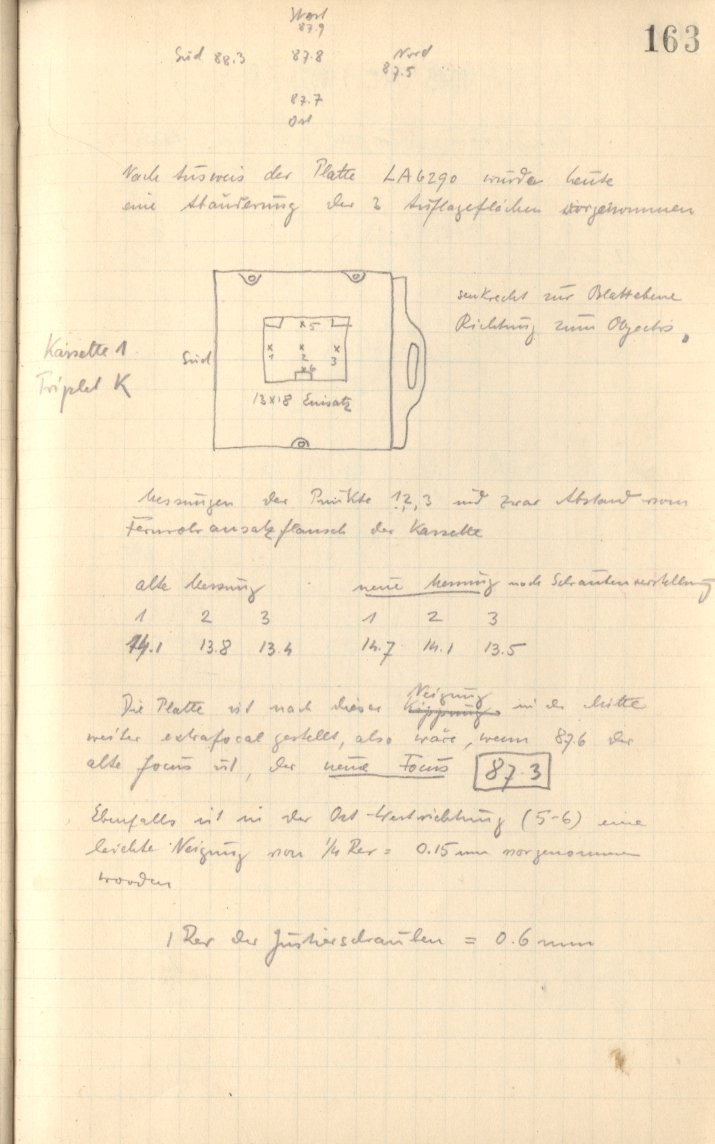 163
West
87.9
Süd 88.3 87.8 Nord
87.5
87.7
Ost
Nach Ausweis der Platte LA6290 wurde heute
eine Abänderung der 3 Auflageflächen vorgenommen
senkrecht zur Blattebene
Richtung zum Objectiv
Kassette 1
Triplet K
Süd
5
1 2 3
6
13x18 Einsatz
Messungen der Punkte 1,2,3 und zwar Abstand vom
Fernrohransatzflansch der Kassette
alte Messung neue Messung nach Schraubenverstellung
1 2 3 1 2 3
14.1 13.8 13.4 14.7 14.1 13.5
Die Platte ist nach dieser Kippung Neigung in der Mitte
weiter extrafocal gestellt, also wäre, wenn 87.6 der
alte focus ist, der neue Focus 87.3
Ebenfalls ist in der Ost-Westrichtung (5-6) eine
leichte Neigung von 1/4 Rev = 0.15 mm vorgenommen
worden
1 Rev der Justierschrauben = 0.6 mm